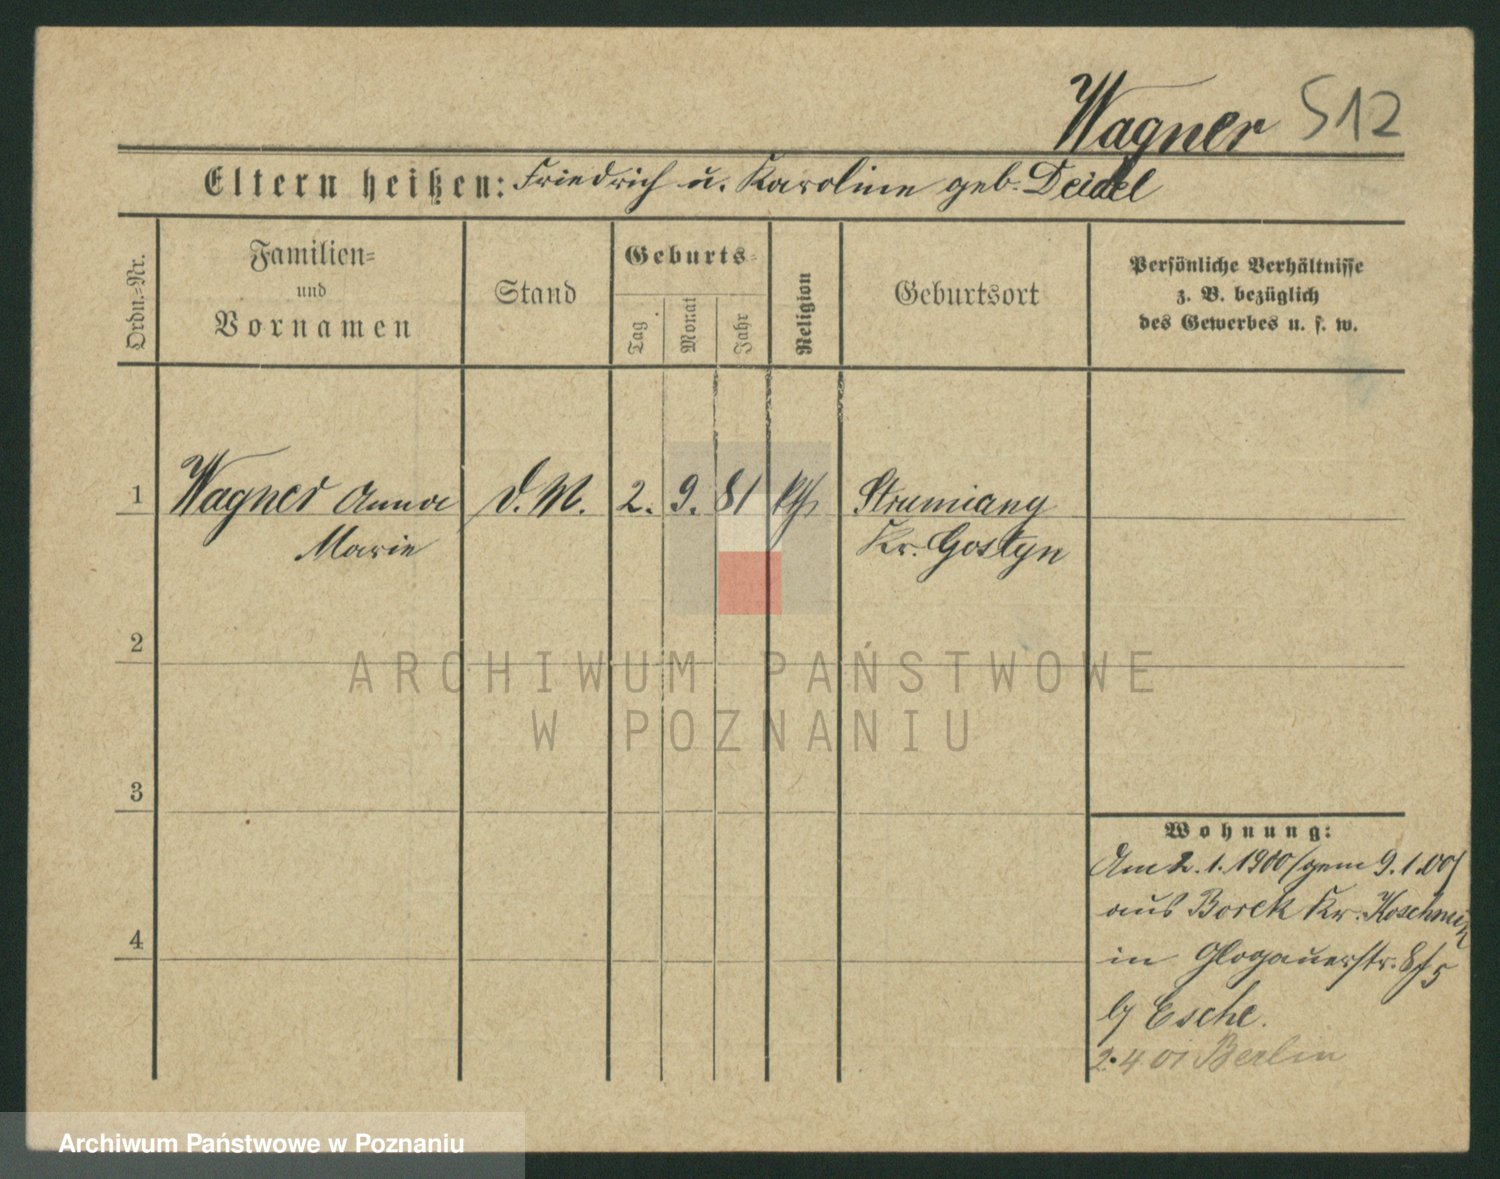 Wagner 512
Eltern heißen: Friedrich u. Karoline geb. Deidel
Ordn.-Nr.
Familien-
und
Vornamen
Stand
Geburts-
Tag
Monat
Jahr
Religion
Geburtsort
Persönliche Verhältnisse
z. B. bezüglich
des Gewerbes u. s. w.
1 Wagner Anna D. M. 2. 9. 81 kth Strumiany
Marie Kr. Gostyn
2
3
4
Wohnung:
Am 2.1.1900 /gem 9.1.00/
aus Borek Kr. Koschmin
in Glogauerstr.
b/ Esche.
2.4 01 Berlin
ARCHIWUM PAŃSTWOWE
W POZNANIU
Archiwum Państwowe w Poznaniu